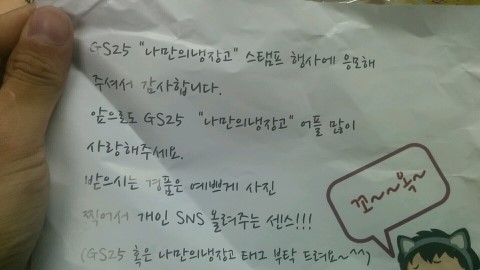 GS25 "나만의냉장고" 스탬프 행사에 응모해
주셔서 감사합니다.
앞으로도 GS25 "나만의냉장고" 어플 많이
사랑해주세요.
받으시는 경품은 예쁘게 사진
찍어서 개인 SNS 올려주는 센스!!!
(GS25 혹은 나만의냉장고 태그 부탁 드려요~^^)
꼬~~옥~